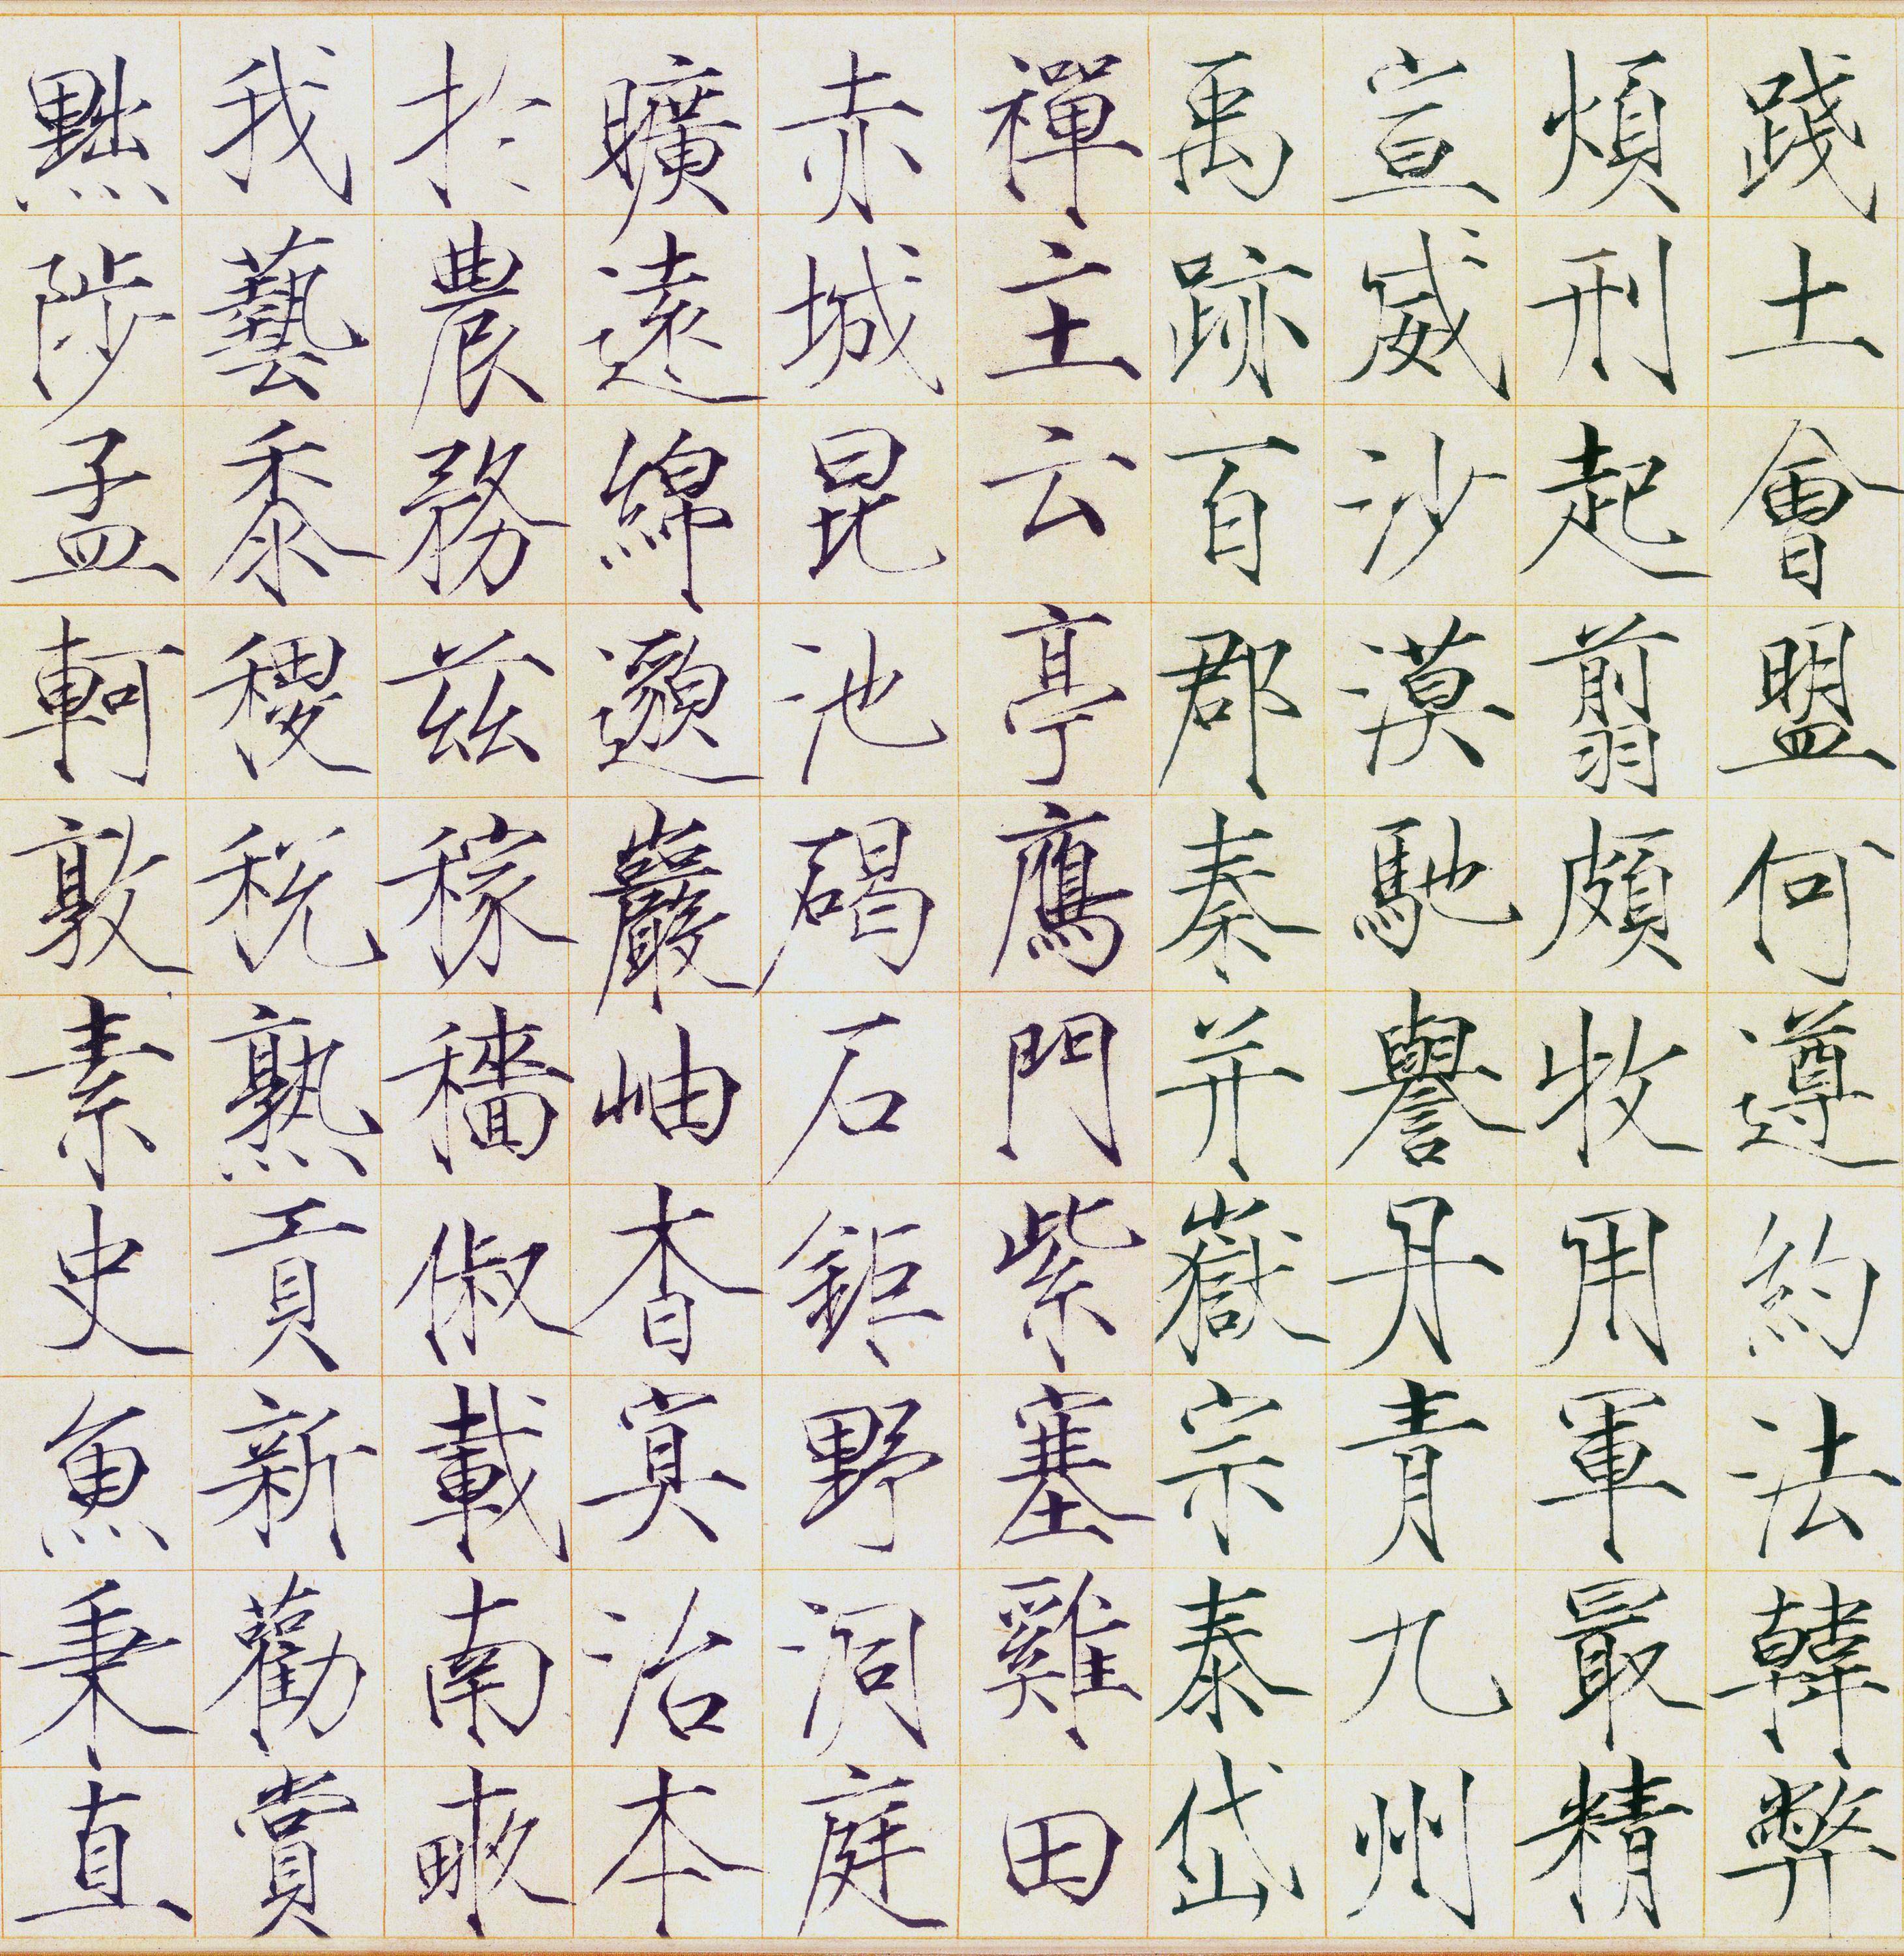 踐土會盟何遵約法韓弊
煩刑起翦頗牧用軍最精
宣威沙漠馳譽丹青九州
禹跡百郡秦并嶽宗泰岱
禪主云亭鴈門紫塞雞田
赤城昆池碣石鉅野洞庭
曠遠綿邈巖岫杳冥治本
於農務茲稼穡俶載南畝
我藝黍稷稅熟貢新勸賞
黜陟孟軻敦素史魚秉直